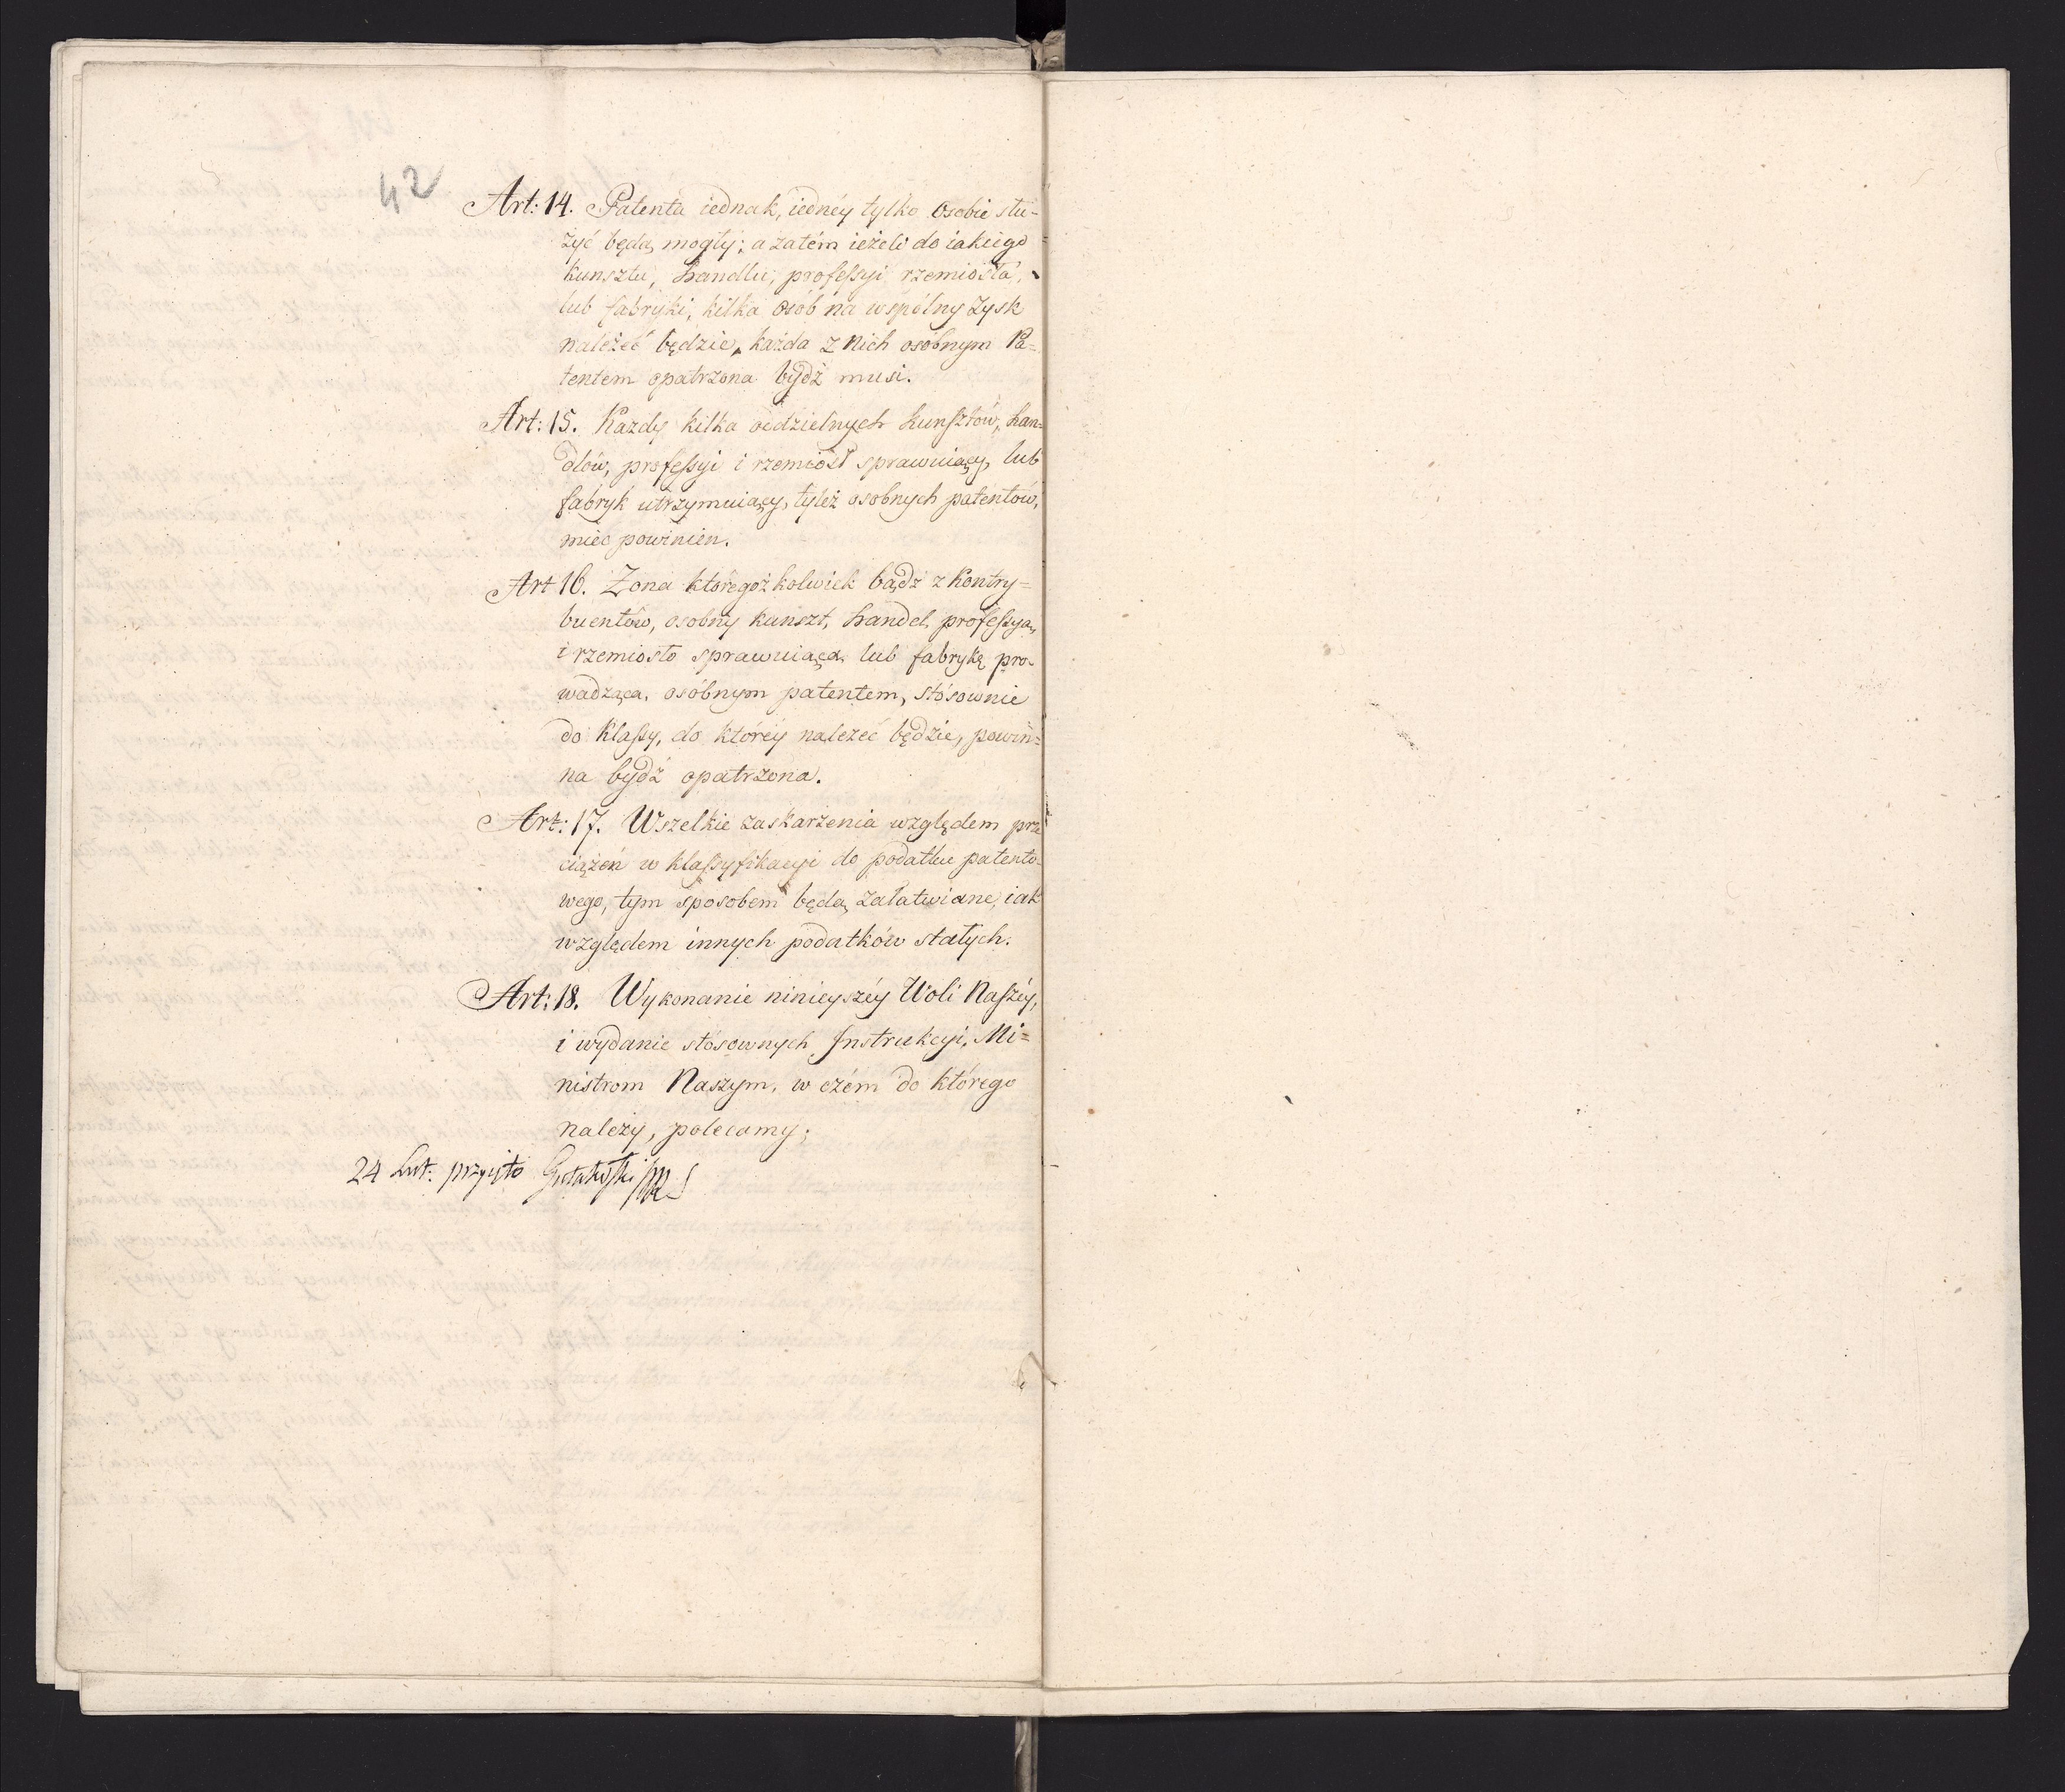 42
Art: 14. Patenta iednak, iednéy tylko Osobie słu-
żyć będą mogły; a zatém ieżeli do iakiego
kunsztu, handlu, professyi rzemiosła,
lub fabryki, kilka osób na wspólny zysk
należeć będzie, każda z nich osóbnym Pa=
tentem opatrzona bydź musi.
Art: 15. Każdy kilka oddzielnych kunsztów, han=
dlów, professyi i rzemiosł sprawuiący, lub
fabryk utrzymuiący, tyleż osobnych patentów,
mieć powinien.
Art 16. Zona któregoż kolwiek bądź z Kontry=
buentów, osobny kunszt, handel, professyą,
i rzemiosło sprawuiąca lub fabrykę pro-
wadząca, osóbnym patentem, stósownie
do Klassy, do któréy należeć będzie, powin=
na bydź opatrzona.
Art: 17. Wszelkie zaskarżenia względem prze
ciążeń w klassyfikacyi do podatku patento-
wego, tym sposobem będą załatwiane, iak
względem innych podatków stałych.
Art: 18. Wykonanie ninieyszéy Woli Naszéy,
i wydanie stósownych Instrukcyi, Mi=
nistrom Naszym, w czém do którego
należy, polecamy;
24 Lut: przyięto